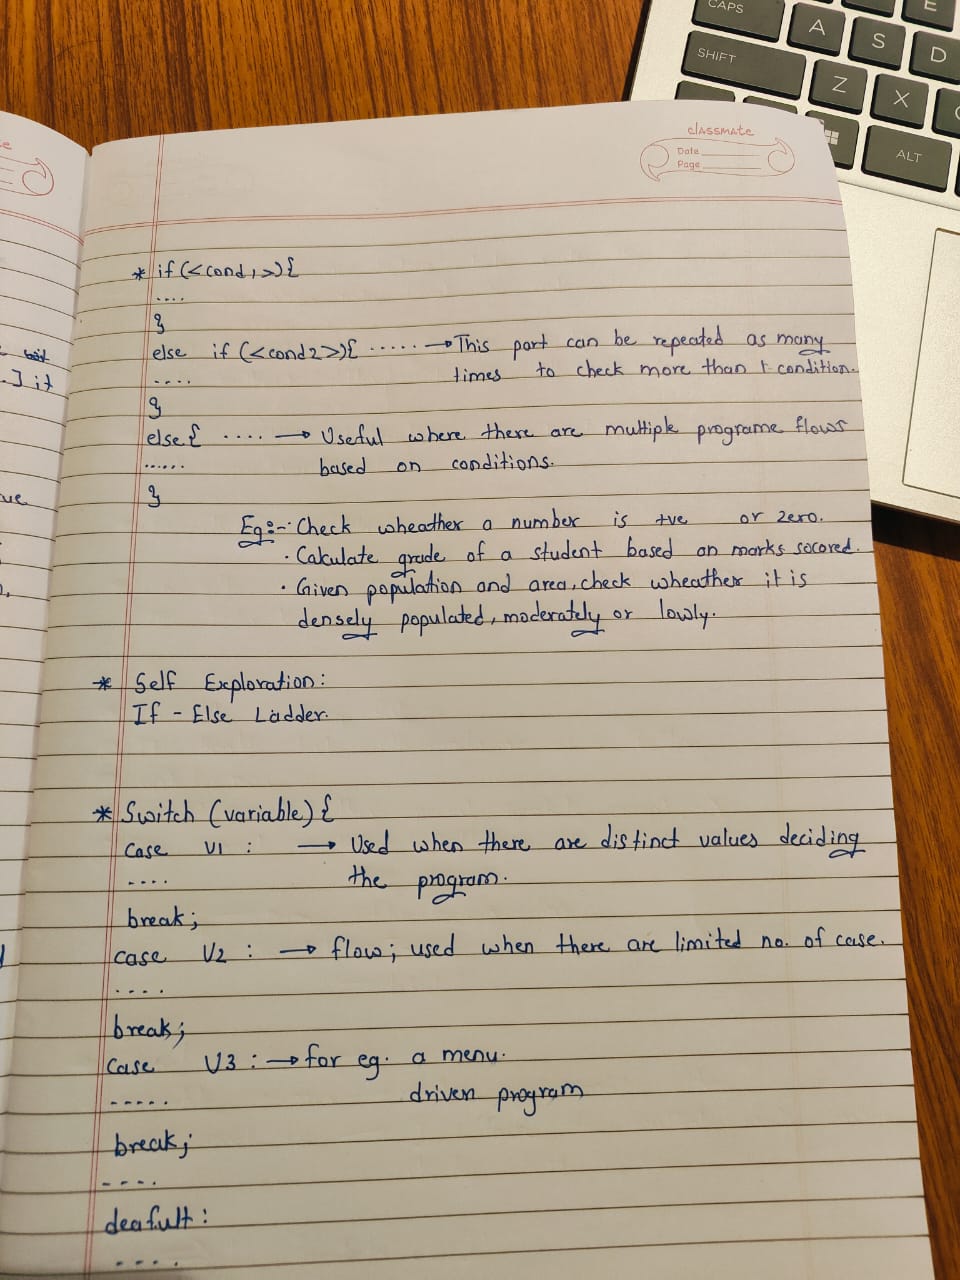 CAPS
A
S
E
D
SHIFT
Z
X
ALT
classmate
Date
Page
* if (<cond1>){
....
}
else if (<cond2>){ ..... → This part can be repeated as many
.... times to check more than 1 condition.
}
else{ .... → Useful where there are multiple programe flows
...... based on conditions.
}
Eg:-· Check wheather a number is +ve or zero.
· Calculate grade of a student based on marks socored.
· Given population and area, check wheather it is
densely populated, moderately or lowly.
* Self Exploration:
If - Else Ladder.
* Switch (variable) {
case V1 : → Used when there are distinct values deciding
.... the program.
break;
case V2 : → flow; used when there are limited no. of case.
....
break;
case V3 : → for eg. a menu.
..... driven program
break;
....
deafult :
....